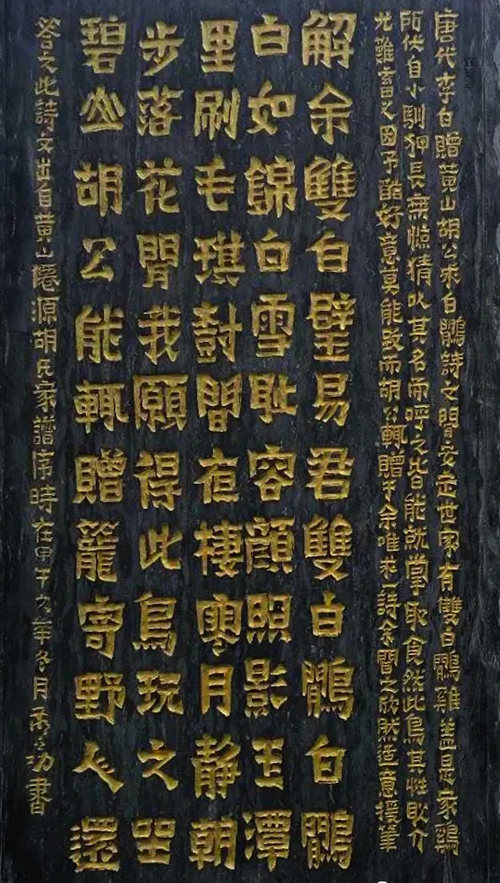 唐代李白贈黃山胡公求白鷴詩文聞安定世家有雙白鷴雞蓋是家鷄
所伏自小馴狎長無惊猜以其名而呼之皆能就掌取食然此鳥其性耿介
尤難畜之因予酷好意莫能致而胡公輒贈于余唯求一詩余聞之欣然适意援筆
解余雙白璧易君雙白鷴白鷴
白如錦白雪耻容顏照影玉潭
里刷毛琪樹間夜棲寒月靜朝
步落花閒我願得此鳥玩之坐
碧山胡公能輒贈籠寄野人還
答之此詩文出自黃山僊源胡氏家譜序時在甲午之年冬月書